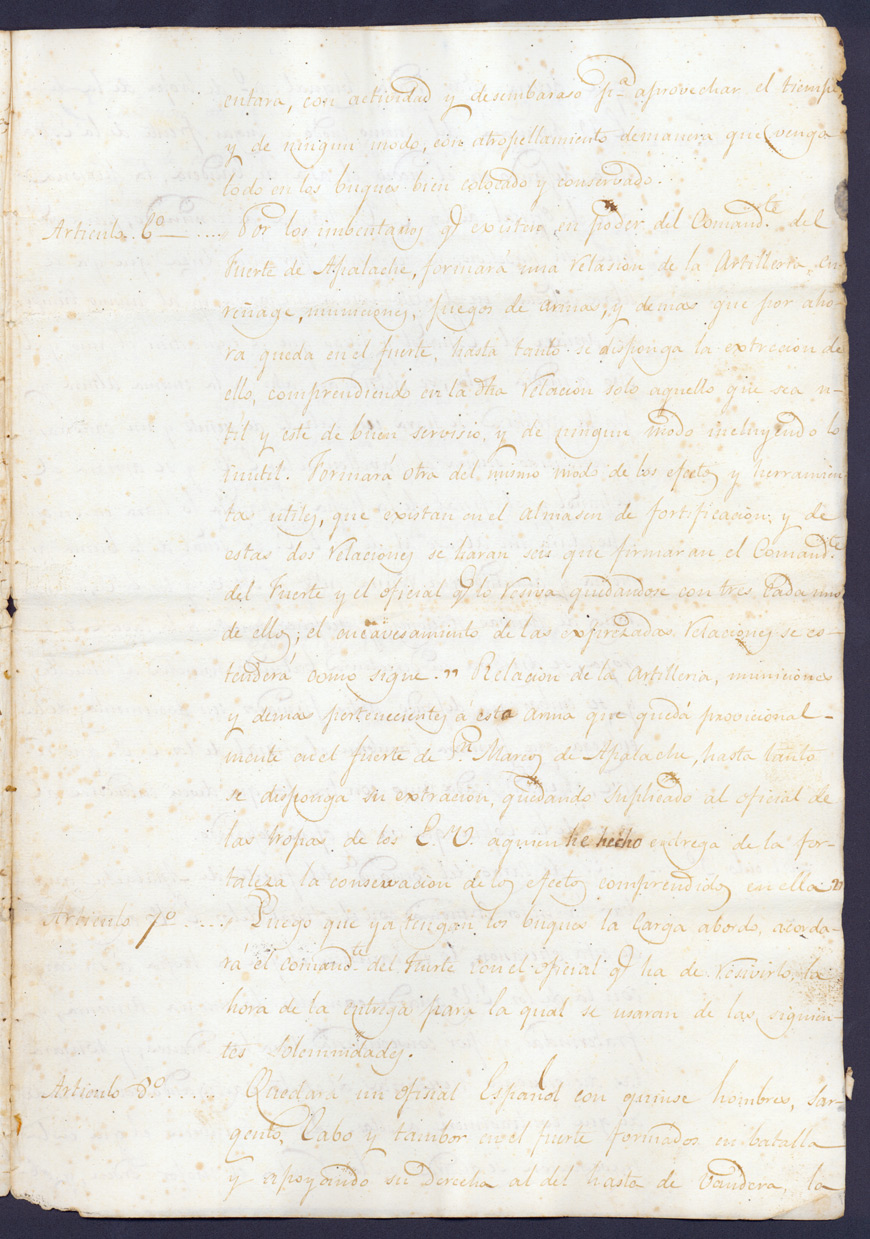 entara, con actividad y desembaraso p.a aprovechar el tiempo
y de ningun modo, con atropellamiento demanera que venga
todo en los buques bien colocado y conservado.
Articulo. 6.o .... Por los imbentarios q.e existen en poder del Comand.te del
Fuerte de Apalache, formará una relasion de la Artilleria, cu-
reñage, municiones, juegos de armas, y demas que por aho-
ra queda en el fuerte, hasta tanto se disponga la extrccion de
ello, comprendiendo en la dha relacion solo aquello que sea u-
til y este de buen servisio, y de ningun modo incluyendo lo
inutil. Formará otra del mismo modo de los efectos y herramien-
tas utiles, que existan en el almasen de fortificasion; y de
estas dos relaciones se haran seis que firmaran el Comand.te
del Fuerte y el oficial q.e lo resiva quedandose con tres Cada uno
de ellos; el encavesamiento de las exprezadas relaciones se es-
tenderá como sigue. " Relacion de la Artilleria, municiones
y demas pertenecientes á esta arma que quedá provicional-
mente en el fuerte de S.n Marcos de Apalache, hasta tanto
se disponga su extracion, quedando suplicado al oficial de
las tropas de los E. U. aquien he hecho entrega de la for-
taleza la conservacion de los efectos comprendidos en ella "
Articulo 7.o .... Luego que ya tengan los buques la Carga abordo, acorda-
rá el comand.te del Fuerte con el oficial q.e ha de resivirlo, la
hora de la entrega para la qual se usaran de las siguien-
tes solemnidades.
Articulo 8.o .... Quedará un oficial Español con quinse hombres, Sar-
gento, Cabo y tambor en el fuerte formados en batalla
y apoyando su Derecha al del hasta de Vandera, la